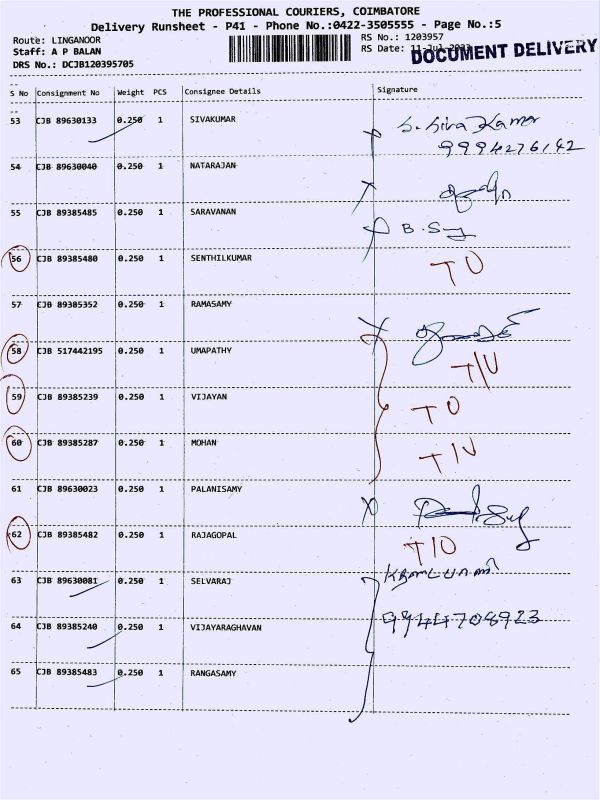 THE PROFESSIONAL COURIERS, COIMBATORE
Delivery Runsheet - P41 - Phone No.:0422-3505555 - Page No.:5
Route: LINGANOOR
RS No.: 1203957
Staff: A P BALAN
RS Date: 11-Jul-2023
DOCUMENT DELIVERY
DRS No.: DCJB120395705
S No Consignment No Weight PCS Consignee Details Signature
53 CJB 89630133 0.250 1 SIVAKUMAR S. Siva Kumar
9994276142
54 CJB 89630040 0.250 1 NATARAJAN
55 CJB 89385485 0.250 1 SARAVANAN
56 CJB 89385480 0.250 1 SENTHILKUMAR T O
57 CJB 89385352 0.250 1 RAMASAMY
58 CJB 517442195 0.250 1 UMAPATHY T/U
59 CJB 89385239 0.250 1 VIJAYAN T O
60 CJB 89385287 0.250 1 MOHAN T/U
61 CJB 89630023 0.250 1 PALANISAMY
62 CJB 89385482 0.250 1 RAJAGOPAL T/O
63 CJB 89630081 0.250 1 SELVARAJ
64 CJB 89385240 0.250 1 VIJAYARAGHAVAN 9944708923
65 CJB 89385483 0.250 1 RANGASAMY